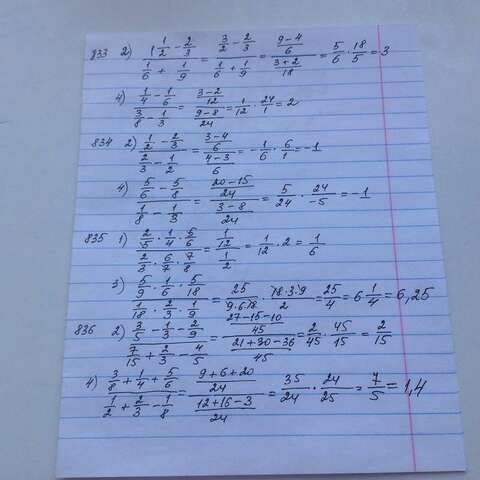 833 2) (1 1/2 - 2/3)/(1/6 + 1/9) = (3/2 - 2/3)/(1/6 + 1/9) = ((9-4)/6)/((3+2)/18) = 5/6 · 18/5 = 3
4) (1/4 - 1/6)/(3/8 - 1/3) = ((3-2)/12)/((9-8)/24) = 1/12 · 24/1 = 2
834 2) (1/2 - 2/3)/(2/3 - 1/2) = ((3-4)/6)/((4-3)/6) = -1/6 · 6/1 = -1
4) (5/6 - 5/8)/(1/8 - 1/3) = ((20-15)/24)/((3-8)/24) = 5/24 · 24/-5 = -1
835 1) (2/5 · 1/4 · 5/6)/(2/3 · 6/7 · 7/8) = (1/12)/(1/2) = 1/12 · 2 = 1/6
3) (5/9 · 1/6 · 5/18)/(1/18 · 2/3 · 1/9) = 25/(9·6·18) · (18·3·9)/2 = 25/4 = 6 1/4 = 6,25
836 2) (3/5 - 1/3 - 2/9)/(7/15 + 2/3 - 4/5) = ((27-15-10)/45)/((21+30-36)/45) = 2/45 · 45/15 = 2/15
4) (3/8 + 1/4 + 5/6)/(1/2 + 2/3 - 1/8) = ((9+6+20)/24)/((12+16-3)/24) = 35/24 · 24/25 = 7/5 = 1,4